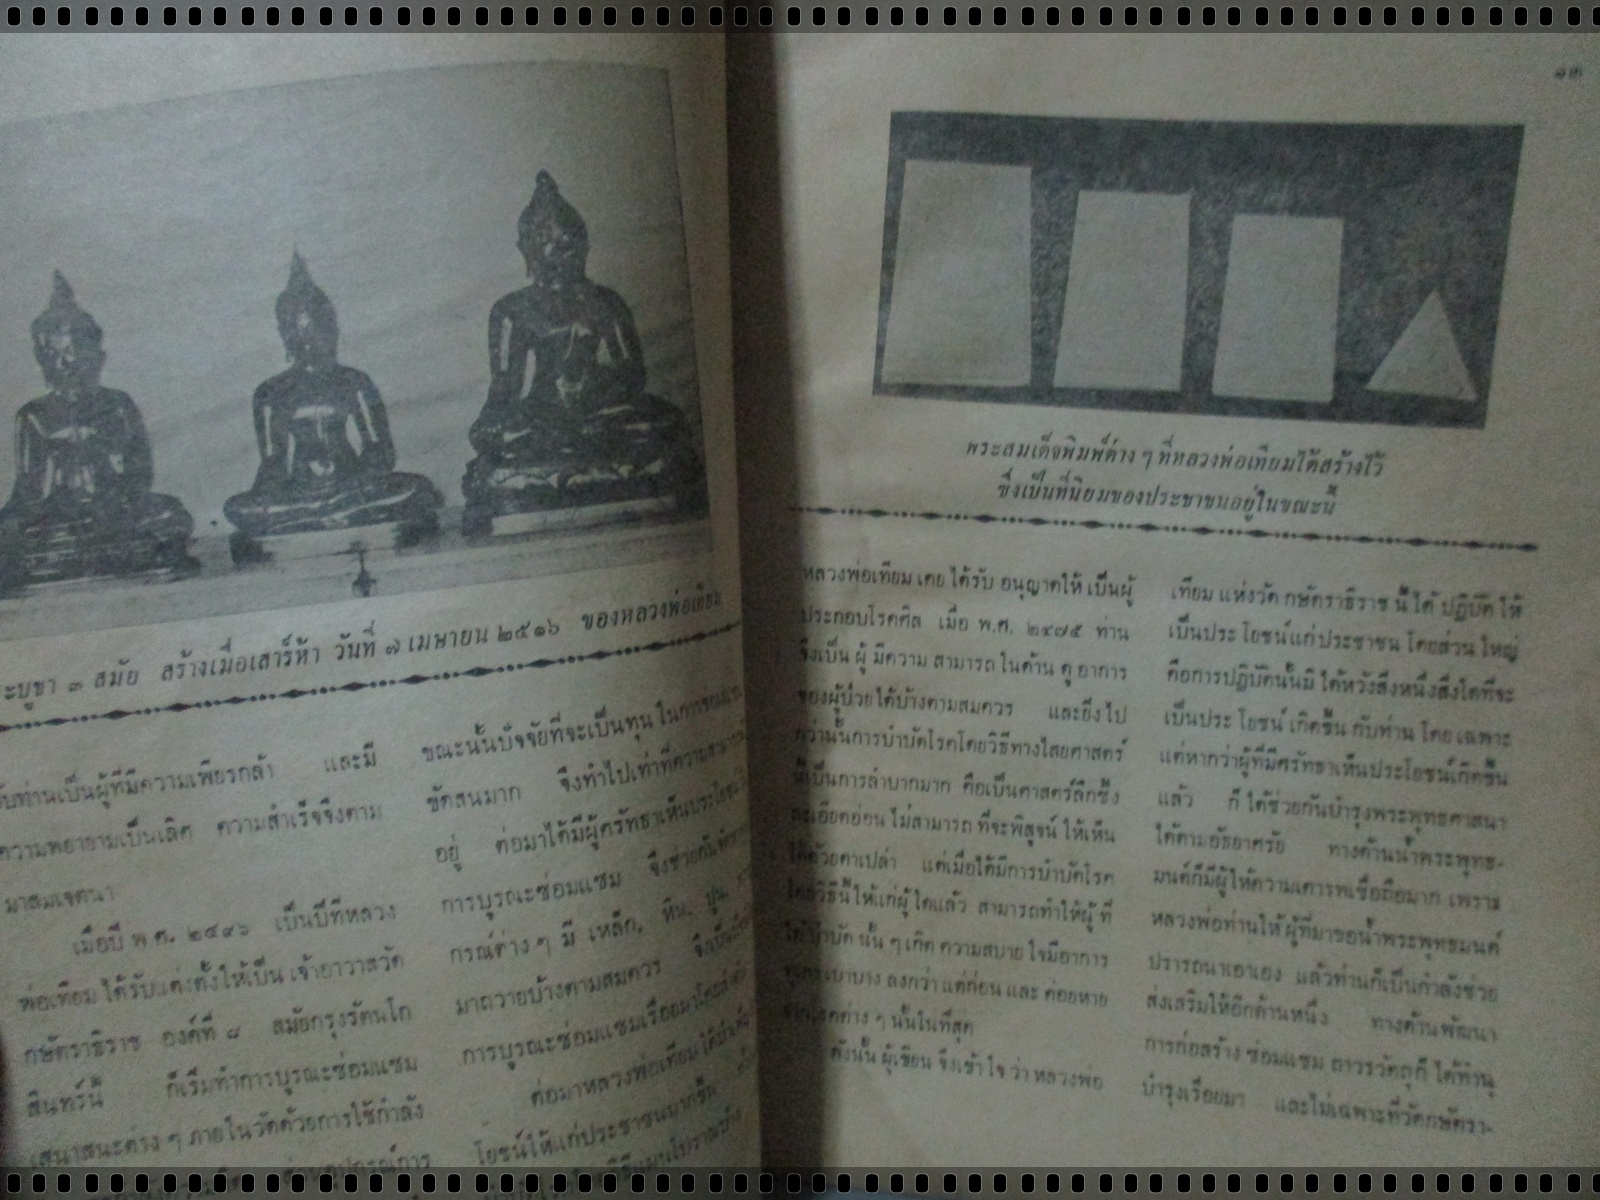 ะบูชา ๓ สมัย สร้างเมื่อเสาร์ห้า วันที่ ๗ เมษายน ๒๕๑๖ ของหลวงพ่อเทียม
ท่านเป็นผู้ที่มีความเพียรกล้า และมี
ความพยายามเป็นเลิศ ความสำเร็จจึงตาม
มาสมเจตนา
เมื่อปี พ.ศ. ๒๔๙๖ เป็นปีที่หลวง
พ่อเทียม ได้รับแต่งตั้งให้เป็น เจ้าอาวาสวัด
กษัตราธิราช องค์ที่ ๘ สมัยกรุงรัตนโก
สินทร์นี้ ก็เริ่มทำการบูรณะซ่อมแซม
เสนาสนะต่าง ๆ ภายในวัดด้วยการใช้กำลัง
ขณะนั้นปัจจัยที่จะเป็นทุน ในการซ่อม
ขัดสนมาก จึงทำไปเท่าที่ความสามารถ
อยู่ ต่อมาได้มีผู้ศรัทธาเห็นประโยชน์
การบูรณะซ่อมแซม จึงช่วยกัน
กรณ์ต่าง ๆ มี เหล็ก, หิน, ปูน,
มาถวายบ้างตามสมควร จึงเป็น
การบูรณะซ่อมแซมเรื่อยมาโดย
ต่อมาหลวงพ่อเทียม ได้
โยชน์ให้แก่ประชาชนมากขึ้น
๑๓
พระสมเด็จพิมพ์ต่าง ๆ ที่หลวงพ่อเทียมได้สร้างไว้
ซึ่งเป็นที่นิยมของประชาชนอยู่ในขณะนี้
หลวงพ่อเทียม เคย ได้รับ อนุญาตให้ เป็นผู้
ประกอบโรคศิล เมื่อ พ.ศ. ๒๔๗๕ ท่าน
จึงเป็น ผู้ มีความ สามารถ ในด้าน ดู อาการ
ของผู้ป่วยได้บ้างตามสมควร และยิ่งไป
กว่านั้นการบำบัดโรคโดยวิธีทางไสยศาสตร์
นี้เป็นการลำบากมาก คือเป็นศาสตร์ลึกซึ้ง
ละเอียดอ่อน ไม่สามารถ ที่จะพิสูจน์ ให้เห็น
ได้ด้วยตาเปล่า แต่เมื่อได้มีการบำบัดโรค
โดยวิธีนี้ให้แก่ผู้ใดแล้ว สามารถทำให้ผู้ ที่
ได้ บำบัด นั้น ๆ เกิด ความสบาย ใจมีอาการ
ทุเลา เบาบาง ลงกว่า แต่ก่อน และ ค่อยหาย
จากโรคต่าง ๆ นั้นในที่สุด
ดังนั้น ผู้เขียน จึงเข้าใจ ว่า หลวงพ่อ
เทียม แห่งวัด กษัตราธิราช นี้ ได้ ปฏิบัติ ให้
เป็นประโยชน์แก่ประชาชน โดยส่วนใหญ่
คือการปฏิบัตินั้นมิได้หวังสิ่งหนึ่งสิ่งใดที่จะ
เป็นประโยชน์ เกิดขึ้น กับท่าน โดยเฉพาะ
แต่หากว่าผู้ที่มีศรัทธาเห็นประโยชน์เกิดขึ้น
แล้ว ก็ ได้ช่วยกันบำรุงพระพุทธศาสนา
ได้ตามอัธยาศรัย ทางด้านน้ำพระพุทธ-
มนต์ก็มีผู้ให้ความเคารพเชื่อถือมาก เพราะ
หลวงพ่อท่านให้ ผู้ที่มาขอน้ำพระพุทธมนต์
ปรารถนาเอาเอง แล้วท่านก็เป็นกำลังช่วย
ส่งเสริมให้อีกด้านหนึ่ง ทางด้านพัฒนา
การก่อสร้าง ซ่อมแซม ถาวรวัตถุก็ ได้ทำนุ
บำรุงเรื่อยมา และไม่เฉพาะที่วัดกษัตรา-